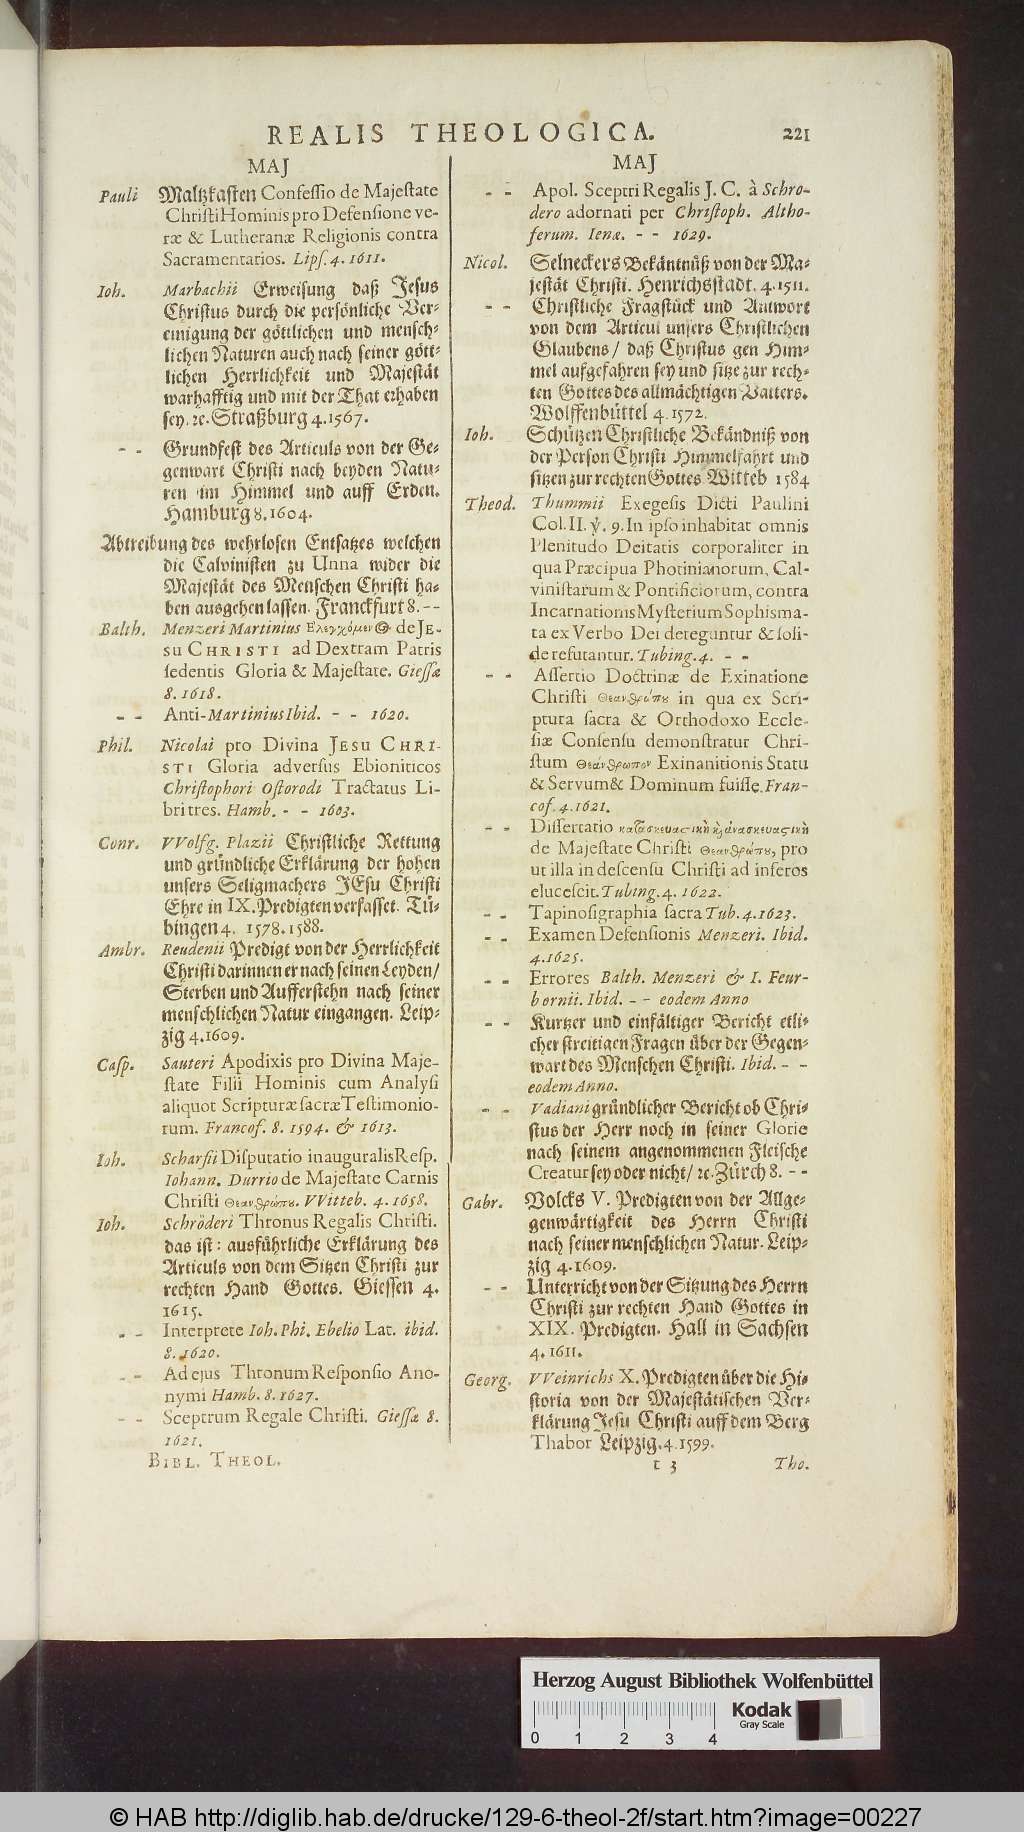 REALIS THEOLOGICA. 221
MAJ
Pauli Maltzkasten Confessio de Majestate
Christi Hominis pro Defensione ve-
ræ & Lutheranæ Religionis contra
Sacramentarios. Lips. 4. 1611.
Ioh. Marbachii Erweisung daß Jesus
Christus durch die persönliche Ver-
einigung der göttlichen und mensch-
lichen Naturen auch nach seiner gött-
lichen Herrlichkeit und Majestät
warhafftig und mit der That erhaben
sey. ꝛc. Straßburg 4. 1567.
- - Grundfest des Articuls von der Ge-
genwart Christi nach beyden Natu-
ren im Himmel und auff Erden.
Hamburg 8. 1604.
Abtreibung des wehrlosen Entsatzes welchen
die Calvinisten zu Unna wider die
Majestät des Menschen Christi ha-
ben ausgehen lassen. Franckfurt 8. - -
Balth. Menzeri Martinius Ἐλεγχόμενος de JE-
SU CHRISTI ad Dextram Patris
sedentis Gloria & Majestate. Giessæ
8. 1618.
- - Anti-Martinius Ibid. - - 1620.
Phil. Nicolai pro Divina JESU CHRI-
STI Gloria adversus Ebioniticos
Christophori Ostorodi Tractatus Li-
bri tres. Hamb. - - 1603.
Conr. VVolfg. Plazii Christliche Rettung
und gründliche Erklärung der hohen
unsers Seligmachers JEsu Christi
Ehre in IX. Predigten verfasset. Tü-
bingen 4. 1578. 1588.
Ambr. Reudenii Predigt von der Herrlichkeit
Christi darinnen er nach seinen Leyden/
Sterben und Aufferstehn nach seiner
menschlichen Natur eingangen. Leip-
zig 4. 1609.
Casp. Sauteri Apodixis pro Divina Maje-
state Filii Hominis cum Analysi
aliquot Scripturæ sacræ Testimonio-
rum. Francof. 8. 1594. & 1613.
Ioh. Scharfii Disputatio inauguralis Resp.
Iohann. Durrio de Majestate Carnis
Christi Θεανθρώπου. VVitteb. 4. 1658.
Ioh. Schröderi Thronus Regalis Christi.
das ist: ausführliche Erklärung des
Articuls von dem Sitzen Christi zur
rechten Hand Gottes. Giessen 4.
1615.
- - Interprete Ioh. Phi. Ebelio Lat. ibid.
8. 1620.
- - Ad ejus Thronum Responsio Ano-
nymi Hamb. 8. 1627.
- - Sceptrum Regale Christi. Giessæ 8.
1621.
BIBL. THEOL.
MAJ
- - Apol. Sceptri Regalis J. C. à Schro-
dero adornati per Christoph. Altho-
ferum. Ienæ. - - 1629.
Nicol. Selneckers Bekäntnüß von der Ma-
jestät Christi. Henrichsstadt. 4. 1511.
- - Christliche Fragstück und Antwort
von dem Articul unsers Christlichen
Glaubens/ daß Christus gen Him-
mel aufgefahren sey und sitze zur rech-
ten Gottes des allmächtigen Vatters.
Wolffenbüttel 4. 1572.
Ioh. Schützen Christliche Bekändniß von
der Person Christi Himmelfahrt und
sitzen zur rechten Gottes Witteb 1584
Theod. Thummii Exegesis Dicti Paulini
Col. II. ℣. 9. In ipso inhabitat omnis
Plenitudo Deitatis corporaliter in
qua Præcipua Photinianorum, Cal-
vinistarum & Pontificiorum, contra
Incarnationis Mysterium Sophisma-
ta ex Verbo Dei deteguntur & soli-
de refutantur. Tubing. 4. - -
- - Assertio Doctrinæ de Exinatione
Christi Θεανθρώπου in qua ex Scri-
ptura sacra & Orthodoxo Eccle-
siæ Consensu demonstratur Chri-
stum Θεάνθρωπον Exinanitionis Statu
& Servum & Dominum fuisse. Fran-
cof. 4. 1621.
- - Dissertatio κατασκευαστικὴ κὴ ἀνασκευαστικὴ
de Majestate Christi Θεανθρώπου, pro
ut illa in descensu Christi ad inferos
elucescit. Tubing. 4. 1622.
- - Tapinosigraphia sacra Tub. 4. 1623.
- - Examen Defensionis Menzeri. Ibid.
4. 1625.
- - Errores Balth. Menzeri & I. Feur-
bornii. Ibid. - - eodem Anno
- - Kurtzer und einfältiger Bericht etli-
cher streitigen Fragen über der Gegen-
wart des Menschen Christi. Ibid. - -
eodem Anno.
- - Vadiani gründlicher Bericht ob Chri-
stus der Herr noch in seiner Glorie
nach seinem angenommenen Fleische
Creatur sey oder nicht/ ꝛc. Zürch 8. - -
Gabr. Volcks V. Predigten von der Allge-
genwärtigkeit des Herrn Christi
nach seiner menschlichen Natur. Leip-
zig 4. 1609.
- - Unterricht von der Sitzung des Herrn
Christi zur rechten Hand Gottes in
XIX. Predigten. Hall in Sachsen
4. 1611.
Georg. VVeinrichs X. Predigten über die Hi-
storia von der Majestätischen Ver-
klärung Jesu Christi auff dem Berg
Thabor Leipzig. 4. 1599.
t 3 Tho.
Herzog August Bibliothek Wolfenbüttel
0 1 2 3 4
Kodak
Gray Scale
© HAB http://diglib.hab.de/drucke/129-6-theol-2f/start.htm?image=00227